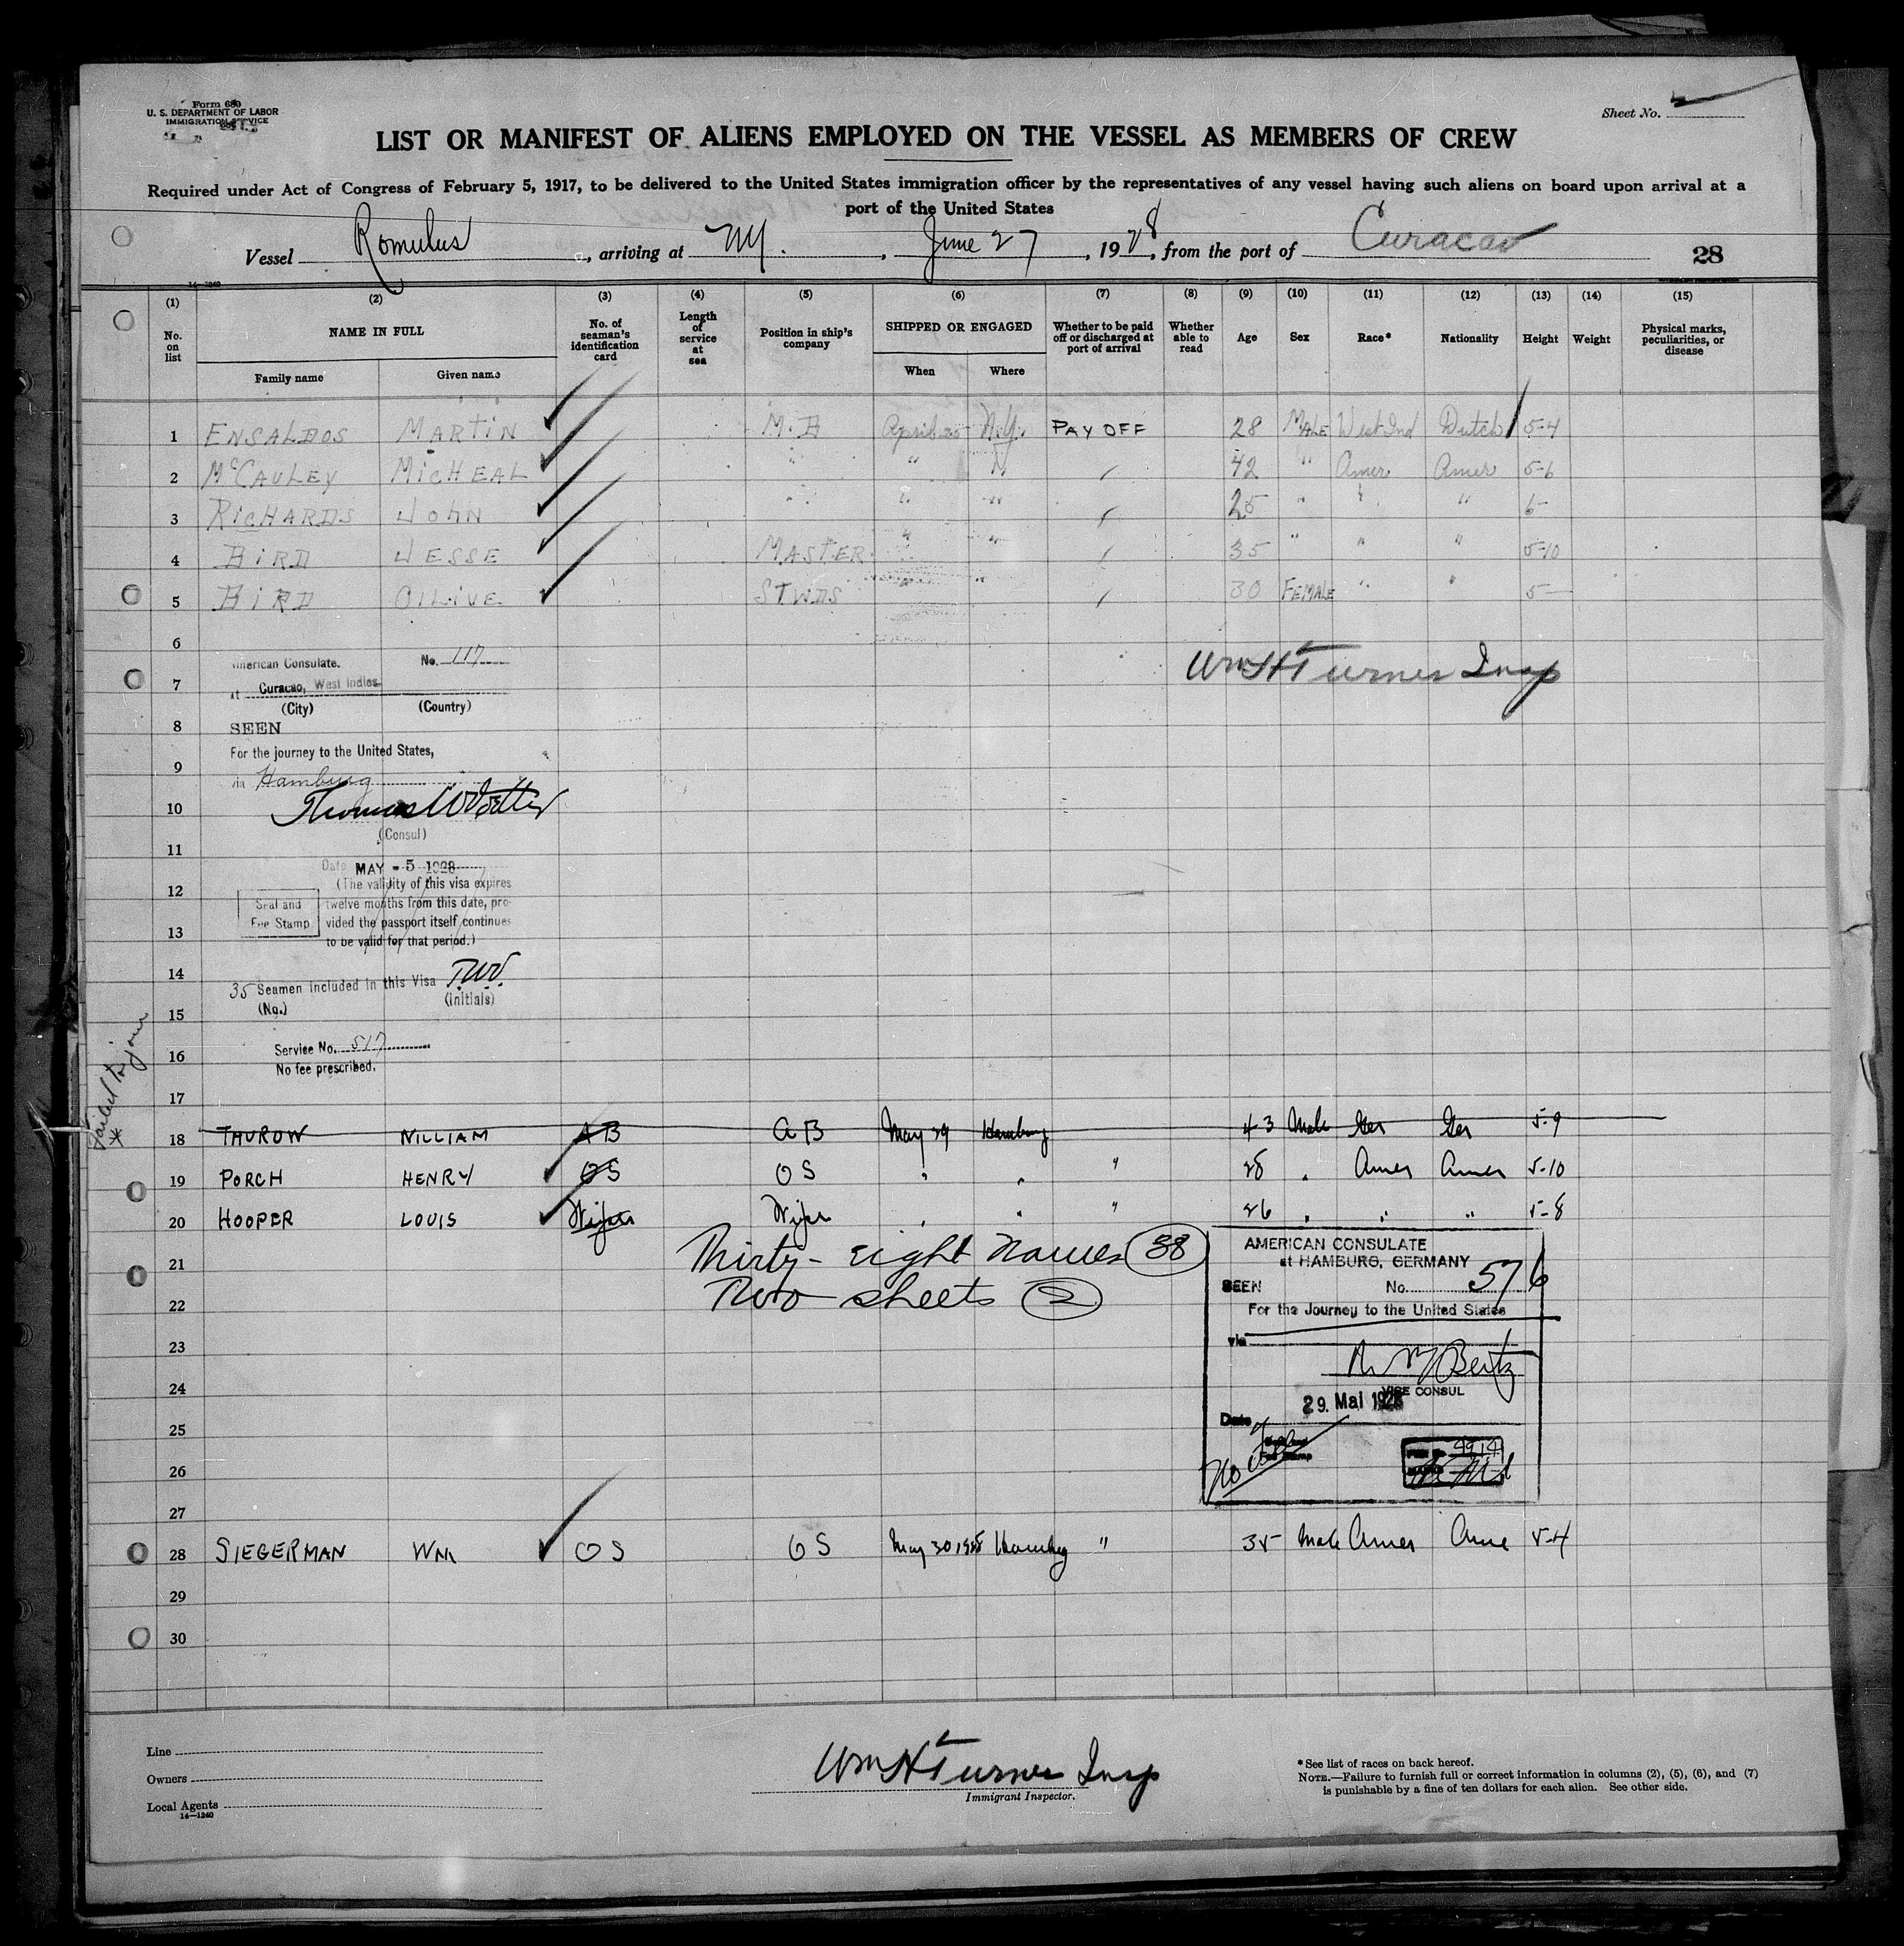 Form 680
U. S. DEPARTMENT OF LABOR
IMMIGRATION SERVICE
Sheet No.
LIST OR MANIFEST OF ALIENS EMPLOYED ON THE VESSEL AS MEMBERS OF CREW
Required under Act of Congress of February 5, 1917, to be delivered to the United States immigration officer by the representatives of any vessel having such aliens on board upon arrival at a
port of the United States
Vessel Romulus, arriving at NY., June 27, 1928, from the port of Curacao 28
14-1240
(1) (2) (3) (4) (5) (6) (7) (8) (9) (10) (11) (12) (13) (14) (15)
No. on list NAME IN FULL No. of seaman's identification card Length of service at sea Position in ship's company SHIPPED OR ENGAGED Whether to be paid off or discharged at port of arrival Whether able to read Age Sex Race* Nationality Height Weight Physical marks, peculiarities, or disease
Family name Given name When Where
1 ENSALDOS MARTIN April N.Y. PAY OFF 28 MALE West Ind Dutch 5-4
2 McCAULEY MICHEAL " " 42 " Amer Amer 5-6
3 RICHARDS JOHN " " " 25 " " " 6-
4 BIRD JESSE MASTER " " 35 " " " 5-10
5 BIRD OLIVE STWDS " " 30 FEMALE " " 5-
6
American Consulate. No. 117
7
at Curacao, West Indies
(City) (Country)
Wm H Turner Insp
8 SEEN
For the journey to the United States,
9
via Hamburg
10
(Consul)
11
Date MAY - 5 1928
12
(The validity of this visa expires
Seal and twelve months from this date, pro-
Fee Stamp vided the passport itself continues
13
to be valid for that period.)
14
35 Seamen included in this Visa TWV.
(No.) (Initials)
15
16
Service No. 517
No fee prescribed.
17
Failed to join
*
18 THUROW WILLIAM AB AB May 29 Hamburg 43 Male Ger Ger 5-9
19 PORCH HENRY OS OS " " " 28 " Amer Amer 5-10
20 HOOPER LOUIS Wiper Wiper " " " 26 " " " 5-8
21 Thirty-eight names 38
22 Two sheets 2
AMERICAN CONSULATE
at HAMBURG, GERMANY
SEEN No. 576
For the Journey to the United States
via
23
24
VICE CONSUL
29. Mai 1928
Date
25
No
Fee Stamp
26
27
28 SIEGERMAN WM OS OS May 30 1928 Hamburg " 35 Male Amer Amer 5-4
29
30
Line
Owners
Local Agents
14-1240
Wm H Turner Insp
Immigrant Inspector.
* See list of races on back hereof.
NOTE.—Failure to furnish full or correct information in columns (2), (5), (6), and (7)
is punishable by a fine of ten dollars for each alien. See other side.